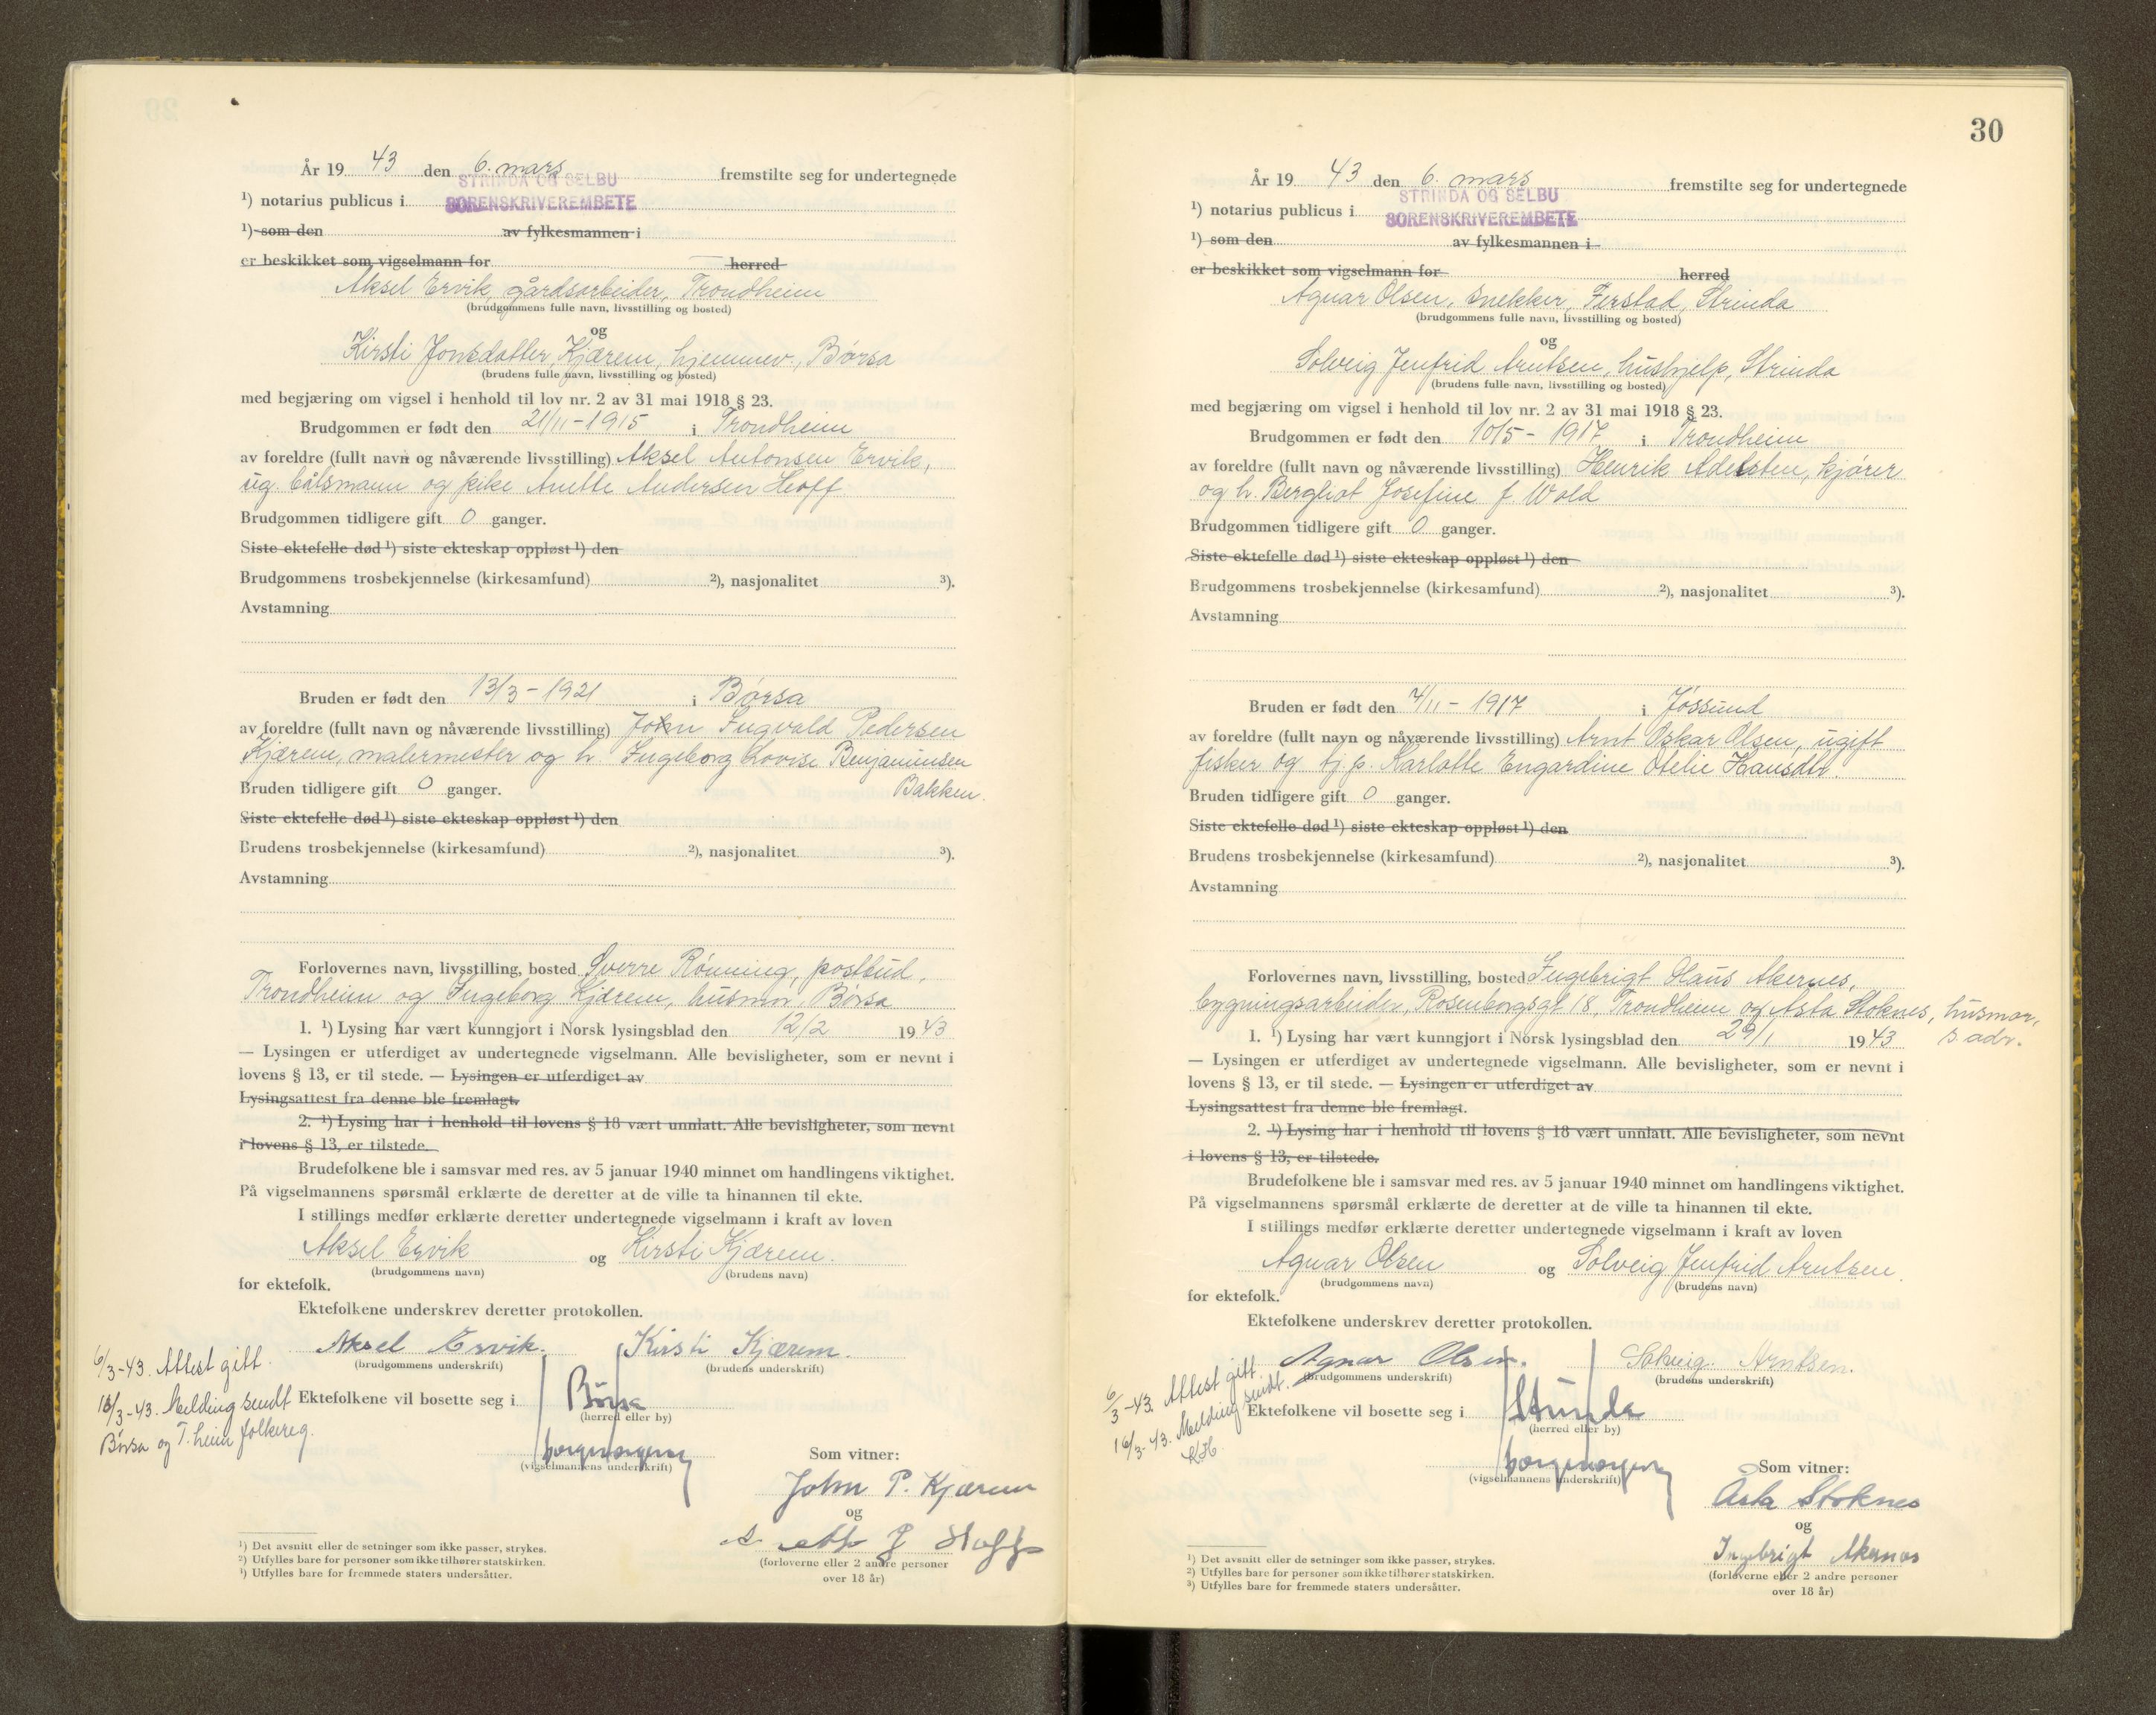 År 19 43 den 6. mars fremstilte seg for undertegnede
¹) notarius publicus i STRINDA OG SELBU
SORENSKRIVEREMBETE
¹) som den av fylkesmannen i
er beskikket som vigselmann for herred
Aksel Ervik, gårdsarbeider, Trondheim
(brudgommens fulle navn, livsstilling og bosted)
og
Kirsti Jonsdatter Kjærem, hjemmev., Børsa
(brudens fulle navn, livsstilling og bosted)
med begjæring om vigsel i henhold til lov nr. 2 av 31 mai 1918 § 23.
Brudgommen er født den 21/11-1915 i Trondheim
av foreldre (fullt navn og nåværende livsstilling) Aksel Antonsen Ervik,
ug. båtsmann og pike Anette Andersen Hoff
Brudgommen tidligere gift 0 ganger.
Siste ektefelle død ¹) siste ekteskap oppløst ¹) den
Brudgommens trosbekjennelse (kirkesamfund) ²), nasjonalitet ³).
Avstamning
Bruden er født den 13/3-1921 i Børsa
av foreldre (fullt navn og nåværende livsstilling) John Ingvald Pedersen
Kjærem, malermester og h. Ingeborg Lovise Benjaminsen
Bruden tidligere gift 0 ganger. Bakken.
Siste ektefelle død ¹) siste ekteskap oppløst ¹) den
Brudens trosbekjennelse (kirkesamfund) ²), nasjonalitet ³).
Avstamning
Forlovernes navn, livsstilling, bosted Sverre Rønning, postbud,
Trondheim og Ingeborg Kjærem, husmor, Børsa
1. ¹) Lysing har vært kunngjort i Norsk lysingsblad den 12/2 19 43
— Lysingen er utferdiget av undertegnede vigselmann. Alle bevisligheter, som er nevnt i
lovens § 13, er til stede. — Lysingen er utferdiget av
Lysingsattest fra denne ble fremlagt.
2. ¹) Lysing har i henhold til lovens § 18 vært unnlatt. Alle bevisligheter, som nevnt
i lovens § 13, er tilstede.
Brudefolkene ble i samsvar med res. av 5 januar 1940 minnet om handlingens viktighet.
På vigselmannens spørsmål erklærte de deretter at de ville ta hinannen til ekte.
I stillings medfør erklærte deretter undertegnede vigselmann i kraft av loven
Aksel Ervik og Kirsti Kjærem.
(brudgommens navn) (brudens navn)
for ektefolk.
Ektefolkene underskrev deretter protokollen.
Aksel Ervik. Kirsti Kjærem.
(brudgommens underskrift) (brudens underskrift)
6/3-43. Attest gitt.
16/3-43. Melding sendt
Børsa og T.heim folkereg.
Ektefolkene vil bosette seg i Børsa
(herred eller by)
(vigselmannens underskrift)
Som vitner:
John P. Kjærem
og
Hoff
(forloverne eller 2 andre personer
over 18 år)
¹) Det avsnitt eller de setninger som ikke passer, strykes.
²) Utfylles bare for personer som ikke tilhører statskirken.
¹) Utfylles bare for fremmede staters undersåtter.
30
År 19 43 den 6. mars fremstilte seg for undertegnede
¹) notarius publicus i STRINDA OG SELBU
SORENSKRIVEREMBETE
¹) som den av fylkesmannen i
er beskikket som vigselmann for herred
Agnar Olsen, snekker, Ferstad, Strinda
(brudgommens fulle navn, livsstilling og bosted)
og
Solveig Jenfrid Arntsen, hushjelp, Strinda
(brudens fulle navn, livsstilling og bosted)
med begjæring om vigsel i henhold til lov nr. 2 av 31 mai 1918 § 23.
Brudgommen er født den 10/5-1917 i Trondheim
av foreldre (fullt navn og nåværende livsstilling) Henrik Adelsten, kjører
og h. Bergliot Josefine f Wold
Brudgommen tidligere gift 0 ganger.
Siste ektefelle død ¹) siste ekteskap oppløst ¹) den
Brudgommens trosbekjennelse (kirkesamfund) ²), nasjonalitet ³).
Avstamning
Bruden er født den 4/11-1917 i Jøssund
av foreldre (fullt navn og nåværende livsstilling) Arnt Oskar Olsen, ugift
fisker og tj.p. Karlotte Engardine Otelie Hansdtr.
Bruden tidligere gift 0 ganger.
Siste ektefelle død ¹) siste ekteskap oppløst ¹) den
Brudens trosbekjennelse (kirkesamfund) ²), nasjonalitet ³).
Avstamning
Forlovernes navn, livsstilling, bosted Ingebrigt Olaus Akernes,
bygningsarbeider, Rosenborgsgt 18, Trondheim og Asta Stoknes, husmor,
s. adr.
1. ¹) Lysing har vært kunngjort i Norsk lysingsblad den 29/1 19 43
— Lysingen er utferdiget av undertegnede vigselmann. Alle bevisligheter, som er nevnt i
lovens § 13, er til stede. — Lysingen er utferdiget av
Lysingsattest fra denne ble fremlagt.
2. ¹) Lysing har i henhold til lovens § 18 vært unnlatt. Alle bevisligheter, som nevnt
i lovens § 13, er tilstede.
Brudefolkene ble i samsvar med res. av 5 januar 1940 minnet om handlingens viktighet.
På vigselmannens spørsmål erklærte de deretter at de ville ta hinannen til ekte.
I stillings medfør erklærte deretter undertegnede vigselmann i kraft av loven
Agnar Olsen og Solveig Jenfrid Arntsen.
(brudgommens navn) (brudens navn)
for ektefolk.
Ektefolkene underskrev deretter protokollen.
Agnar Olsen. Solveig Arntsen.
(brudgommens underskrift) (brudens underskrift)
6/3-43. Attest gitt.
16/3-43. Melding sendt.
Ektefolkene vil bosette seg i Strinda
(herred eller by)
(vigselmannens underskrift)
Som vitner:
Åsta Stoknes
og
Ingebrigt Akernes
(forloverne eller 2 andre personer
over 18 år)
¹) Det avsnitt eller de setninger som ikke passer, strykes.
²) Utfylles bare for personer som ikke tilhører statskirken.
³) Utfylles bare for fremmede staters undersåtter.